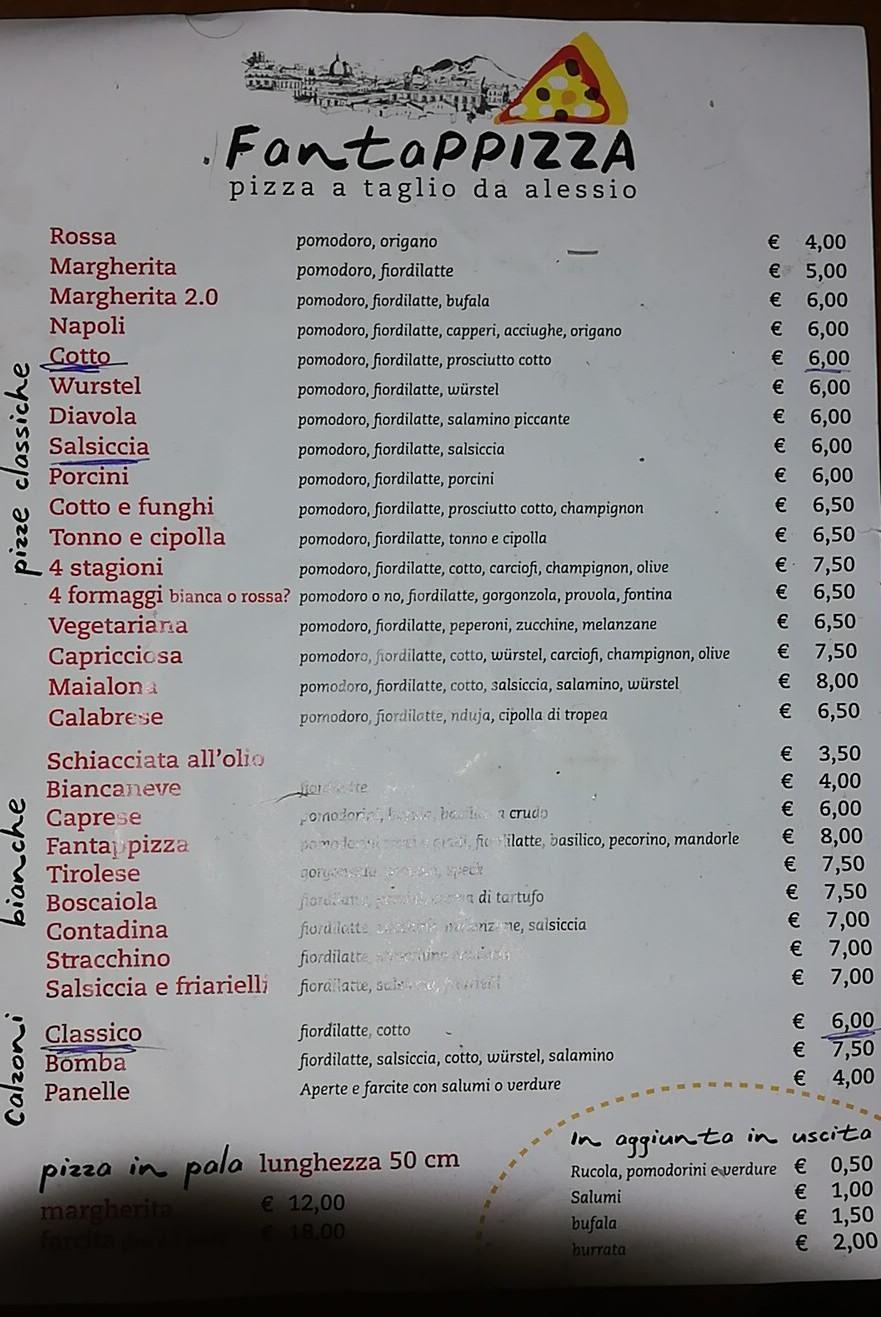 FantaPPIZZA
pizza a taglio da alessio
pizze classiche
Rossa pomodoro, origano € 4,00
Margherita pomodoro, fiordilatte € 5,00
Margherita 2.0 pomodoro, fiordilatte, bufala € 6,00
Napoli pomodoro, fiordilatte, capperi, acciughe, origano € 6,00
Cotto pomodoro, fiordilatte, prosciutto cotto € 6,00
Wurstel pomodoro, fiordilatte, würstel € 6,00
Diavola pomodoro, fiordilatte, salamino piccante € 6,00
Salsiccia pomodoro, fiordilatte, salsiccia € 6,00
Porcini pomodoro, fiordilatte, porcini € 6,00
Cotto e funghi pomodoro, fiordilatte, prosciutto cotto, champignon € 6,50
Tonno e cipolla pomodoro, fiordilatte, tonno e cipolla € 6,50
4 stagioni pomodoro, fiordilatte, cotto, carciofi, champignon, olive € 7,50
4 formaggi bianca o rossa? pomodoro o no, fiordilatte, gorgonzola, provola, fontina € 6,50
Vegetariana pomodoro, fiordilatte, peperoni, zucchine, melanzane € 6,50
Capricciosa pomodoro, fiordilatte, cotto, würstel, carciofi, champignon, olive € 7,50
Maialona pomodoro, fiordilatte, cotto, salsiccia, salamino, würstel € 8,00
Calabrese pomodoro, fiordilatte, nduja, cipolla di tropea € 6,50
bianche
Schiacciata all'olio € 3,50
Biancaneve fiordilatte € 4,00
Caprese pomodorini, basilico a crudo € 6,00
Fantappizza fiordilatte, basilico, pecorino, mandorle € 8,00
Tirolese speck € 7,50
Boscaiola fiordilatte, di tartufo € 7,50
Contadina fiordilatte, melanzane, salsiccia € 7,00
Stracchino fiordilatte, € 7,00
Salsiccia e friarielli fiordilatte, salsiccia, friarielli € 7,00
Calzoni
Classico fiordilatte, cotto € 6,00
Bomba fiordilatte, salsiccia, cotto, würstel, salamino € 7,50
Panelle Aperte e farcite con salumi o verdure € 4,00
pizza in pala lunghezza 50 cm
margherita € 12,00
farcita € 18,00
In aggiunta in uscita
Rucola, pomodorini e verdure € 0,50
Salumi € 1,00
bufala € 1,50
burrata € 2,00